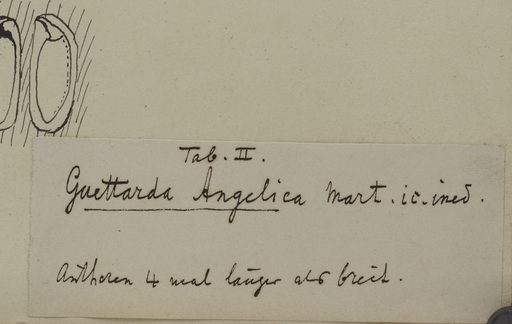 Tab. II.
Guettarda Angelica Mart. ic. ined.
Antheren 4 mal länger als breit.